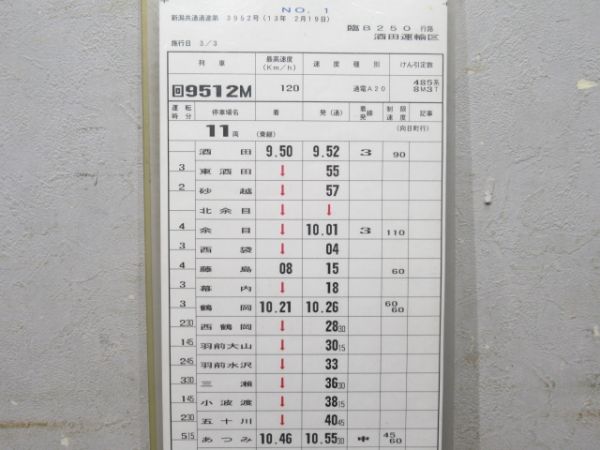 NO. 1
新潟共通達第 3952号(13年 2月19日)
臨8250 行路
酒田運輸区
施行日 3/3
列車 最高速度(Km/h) 速度種別 けん引定数
回9512M 120 通電A20 485系 8M3T
運転時分 停車場名 着 発(通) 着線発線 制限速度 記事
11両 (乗継) (向日町行)
酒田 9.50 9.52 3 90
3 東酒田 ↓ 55
2 砂越 ↓ 57
北余目 ↓ ↓
4 余目 ↓ 10.01 3 110
3 西袋 ↓ 04
4 藤島 08 15 60
3 幕内 ↓ 18
3 鶴岡 10.21 10.26 60 60
230 西鶴岡 ↓ 28 30
145 羽前大山 ↓ 30 15
245 羽前水沢 ↓ 33
330 三瀬 ↓ 36 30
145 小波渡 ↓ 38 15
230 五十川 ↓ 40 45
515 あつみ 10.46 10.55 30 中 45 60